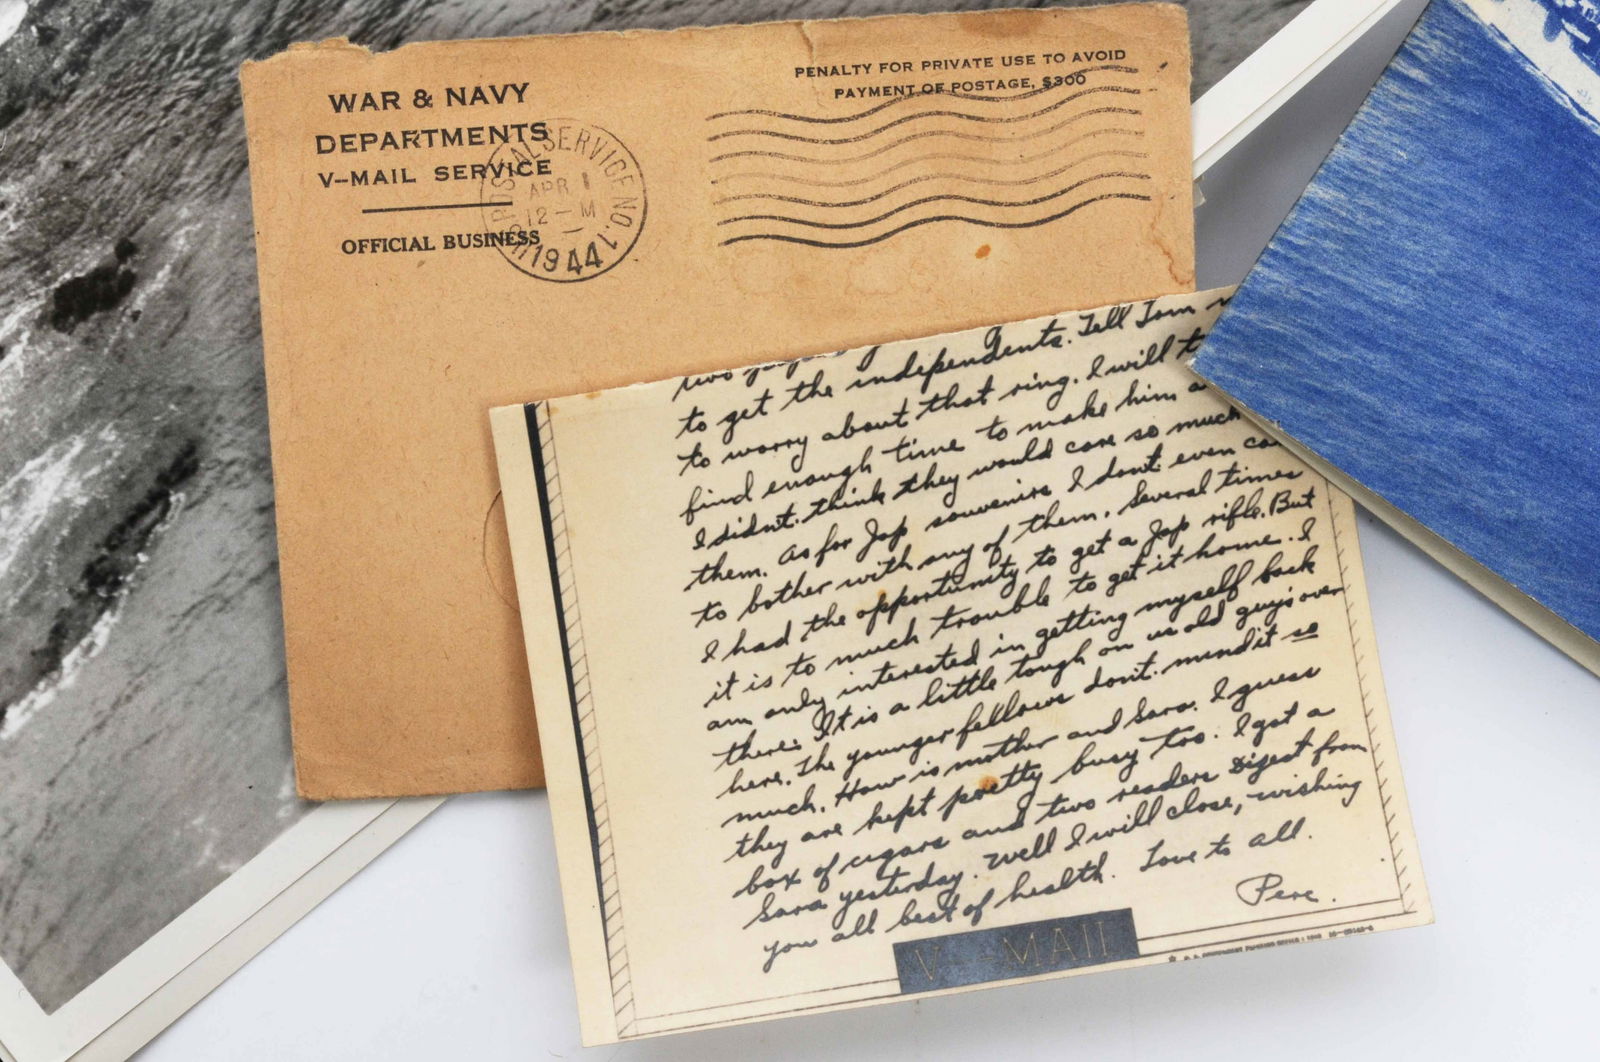 WAR & NAVY
DEPARTMENTS
V-MAIL SERVICE
OFFICIAL BUSINESS
PENALTY FOR PRIVATE USE TO AVOID
PAYMENT OF POSTAGE, $300
POSTAL SERVICE NO. 1
APR 1
12-M
1944
two
to get the independents. Tell Tom
to worry about that ring. I will
find enough time to make him a
I didn't think they would care so much
them. As for Jap souvenirs I don't even
to bother with any of them. Several times
I had the opportunity to get a Jap rifle. But
it is to much trouble to get it home. I
am only interested in getting myself back
there. It is a little tough on us old guys over
here. The younger fellows don't mind it so
much. How is mother and Sara. I guess
they are kept pretty busy too. I got a
box of cigars and two readers Digest from
Sara yesterday. Well I will close, wishing
you all best of health. Love to all.
Perc.
V-MAIL